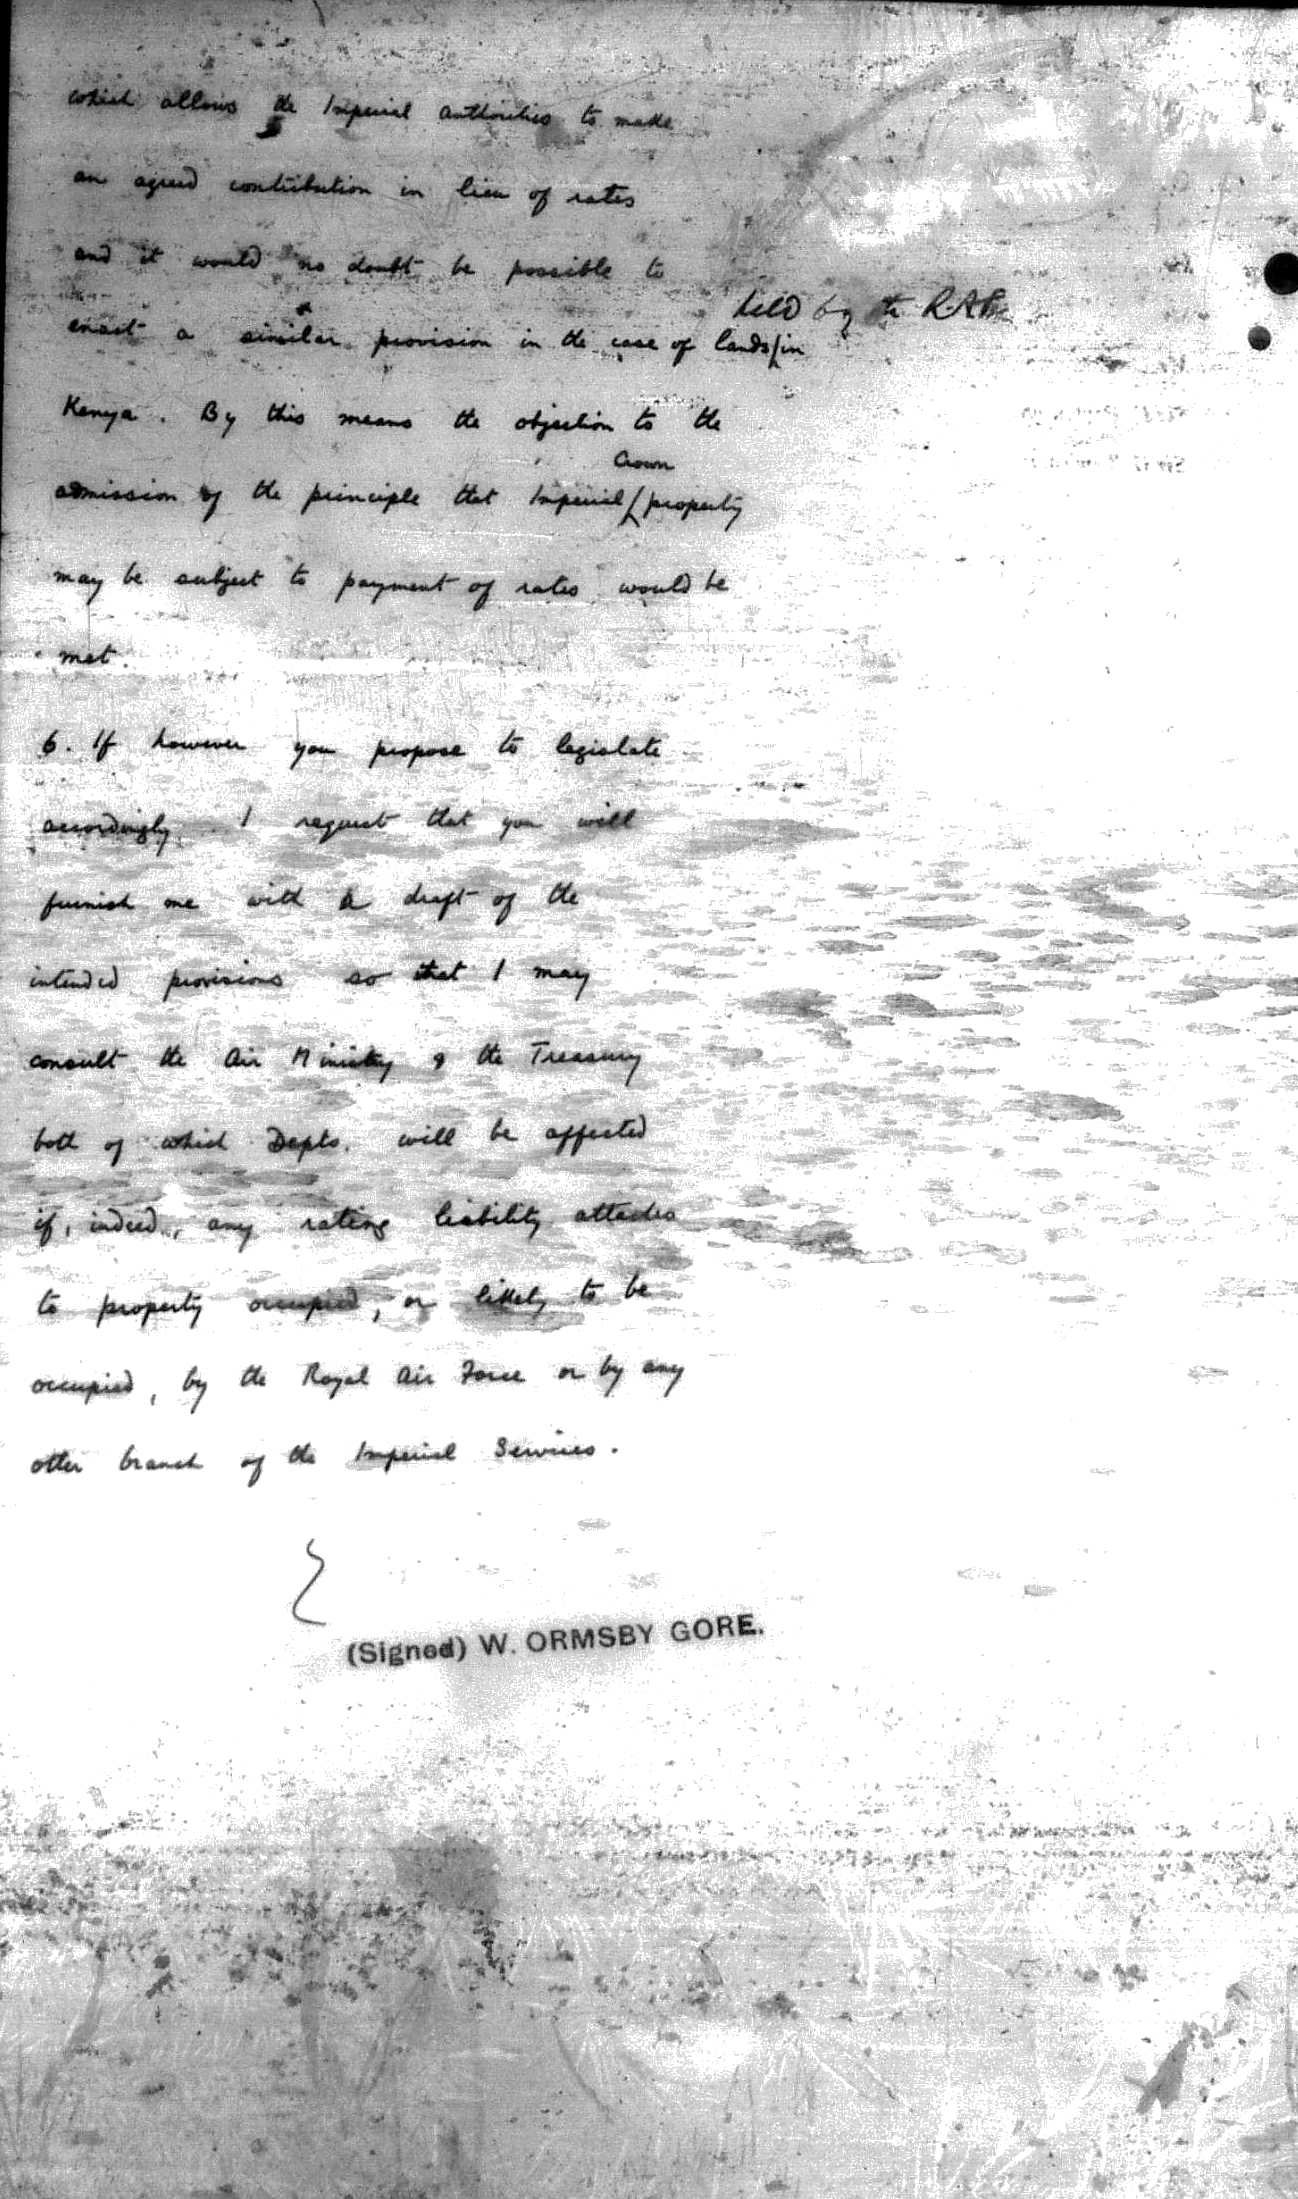 which allows the Imperial authorities to make
an agreed contribution in lieu of rates
and it would no doubt be possible to
held by the RAF
enact a similar provision in the case of lands/in
Kenya. By this means the objection to the
Crown
admission of the principle that Imperial/property
may be subject to payment of rates would be
met.
6. If however you propose to legislate
accordingly I request that you will
furnish me with a draft of the
intended provisions so that I may
consult the Air Ministry & the Treasury
both of which Depts. will be affected
if, indeed, any rating liability attaches
to property occupied, or likely to be
occupied, by the Royal Air Force or by any
other branch of the Imperial Services.
(Signed) W. ORMSBY GORE.